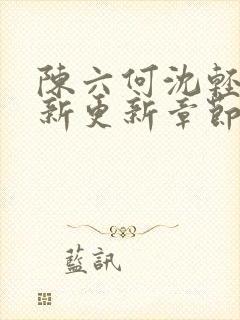 陳六何沈輕
新更新章節
藍訊